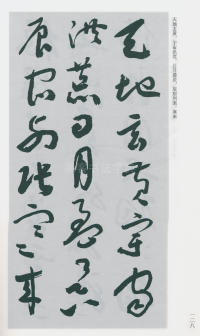 天地玄黄，宇宙洪荒。日月盈昃，辰宿列张。寒来
天地玄黄宇宙
洪荒日月盈昃
辰宿列张寒来